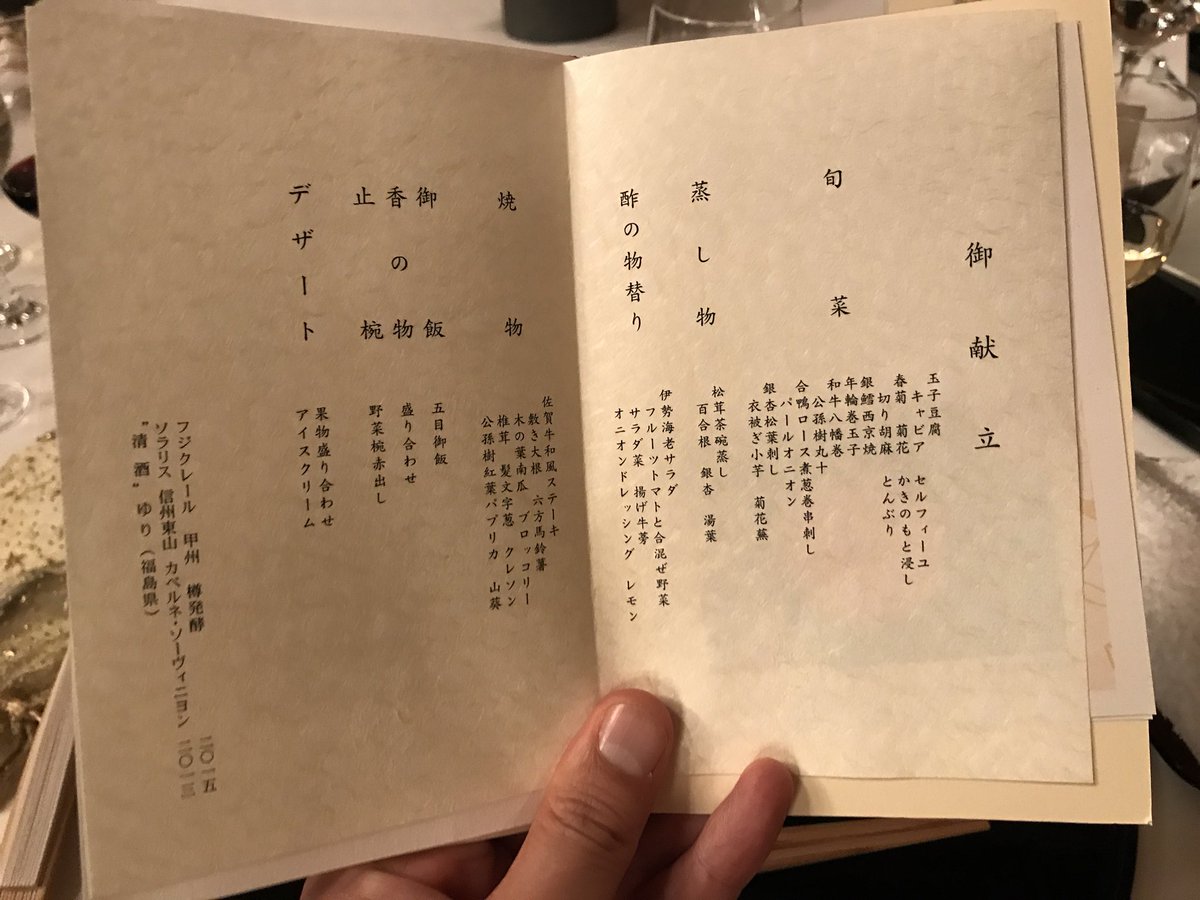 御献立
旬菜
玉子豆腐
キャビア セルフィーユ
春菊 菊花 かきのもと浸し
切り胡麻 とんぶり
銀鱈西京焼
年輪巻玉子
和牛八幡巻
公孫樹丸十
合鴨ロース煮葱巻串刺し
パールオニオン
銀杏松葉刺し
衣被ぎ小芋 菊花蕪
蒸し物
松茸茶碗蒸し
百合根 銀杏 湯葉
酢の物替り
伊勢海老サラダ
フルーツトマトと合混ぜ野菜
サラダ菜 揚げ牛蒡
オニオンドレッシング レモン
焼物
佐賀牛和風ステーキ
敷き大根 六方馬鈴薯
木の葉南瓜 ブロッコリー
椎茸 髪文字葱 クレソン
公孫樹紅葉パプリカ 山葵
御飯
五目御飯
香の物
盛り合わせ
止椀
野菜椀赤出し
デザート
果物盛り合わせ
アイスクリーム
フジクレール 甲州 樽発酵 二〇一五
ソラリス 信州東山 カベルネ・ソーヴィニヨン 二〇一三
"清酒" ゆり（福島県）